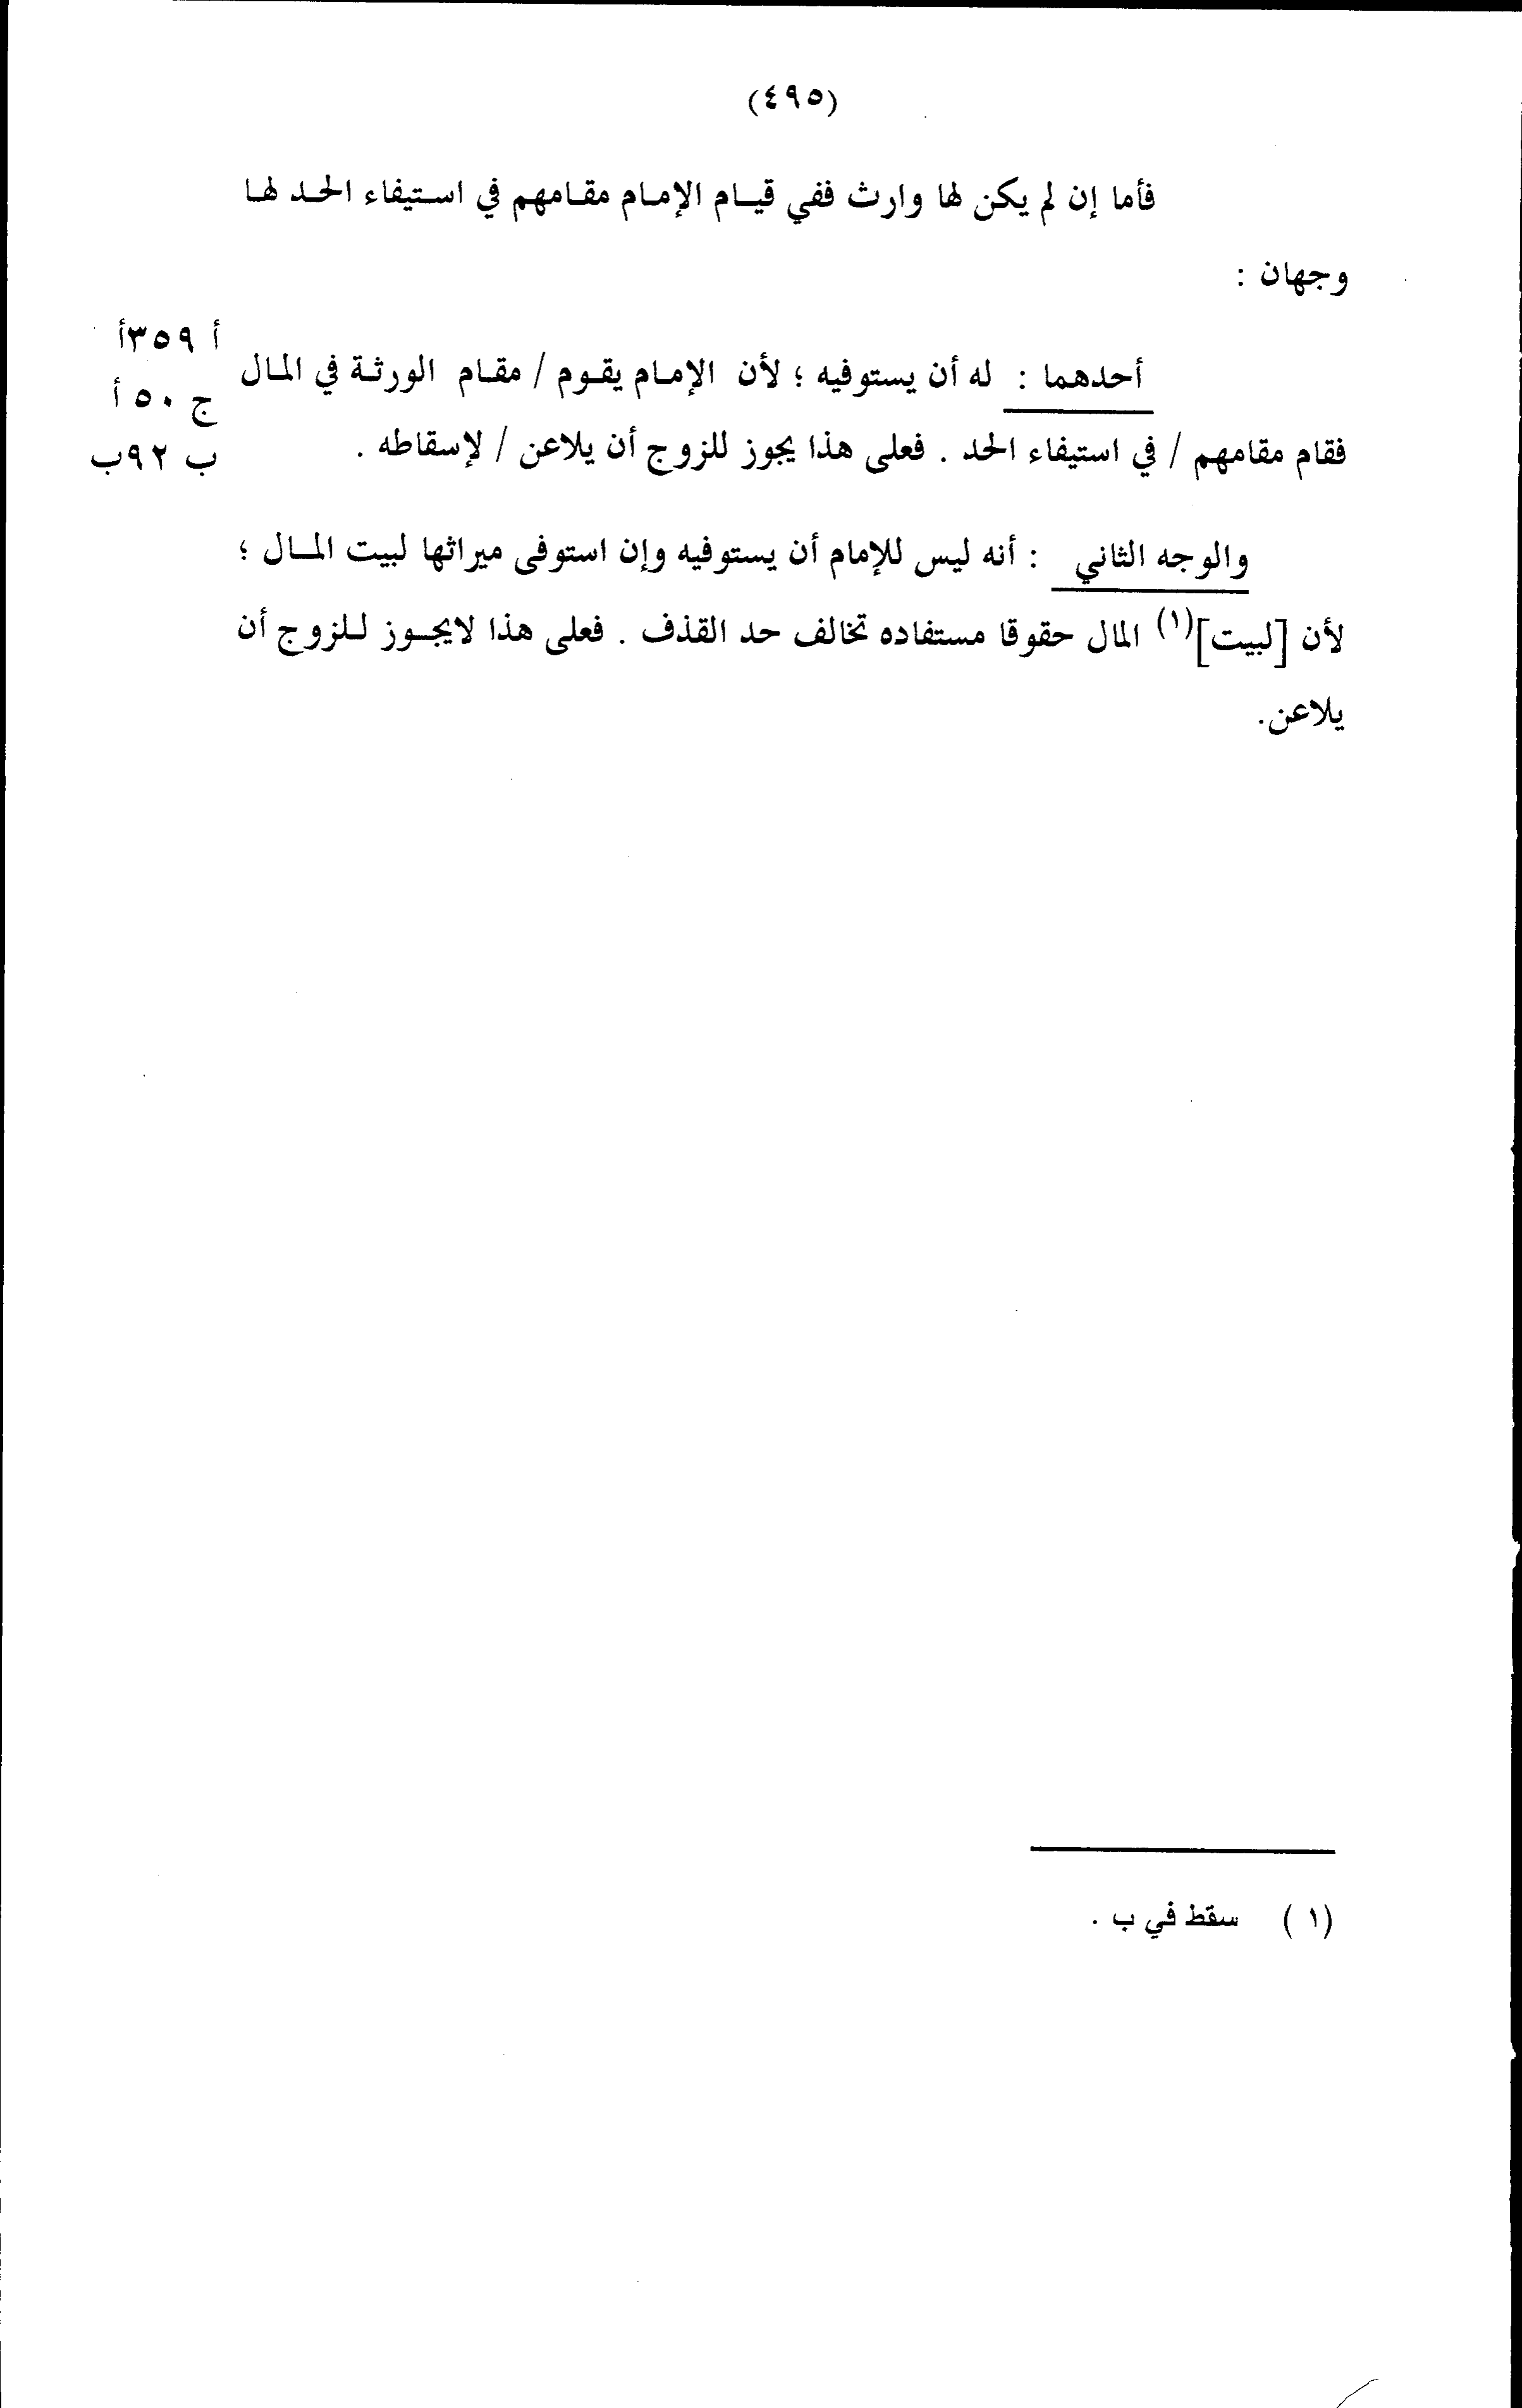 (٤٩٥)
فأما إن لم يكن لها وارث ففي قيام الإمام مقامهم في استيفاء الحد لها
وجهان :
أحدهما : له أن يستوفيه ؛ لأن الإمام يقوم / مقام الورثة في المال
أ ٣٥٩أ
فقام مقامهم / في استيفاء الحد . فعلى هذا يجوز للزوج أن يلاعن / لإسقاطه .
ج ٥٠ أ
ب ٩٢ب
والوجه الثاني : أنه ليس للإمام أن يستوفيه وإن استوفى ميراثها لبيت المال ؛
لأن [لبيت](١) المال حقوقا مستفاده تخالف حد القذف . فعلى هذا لايجوز للزوج أن
يلاعن.
(١) سقط في ب .